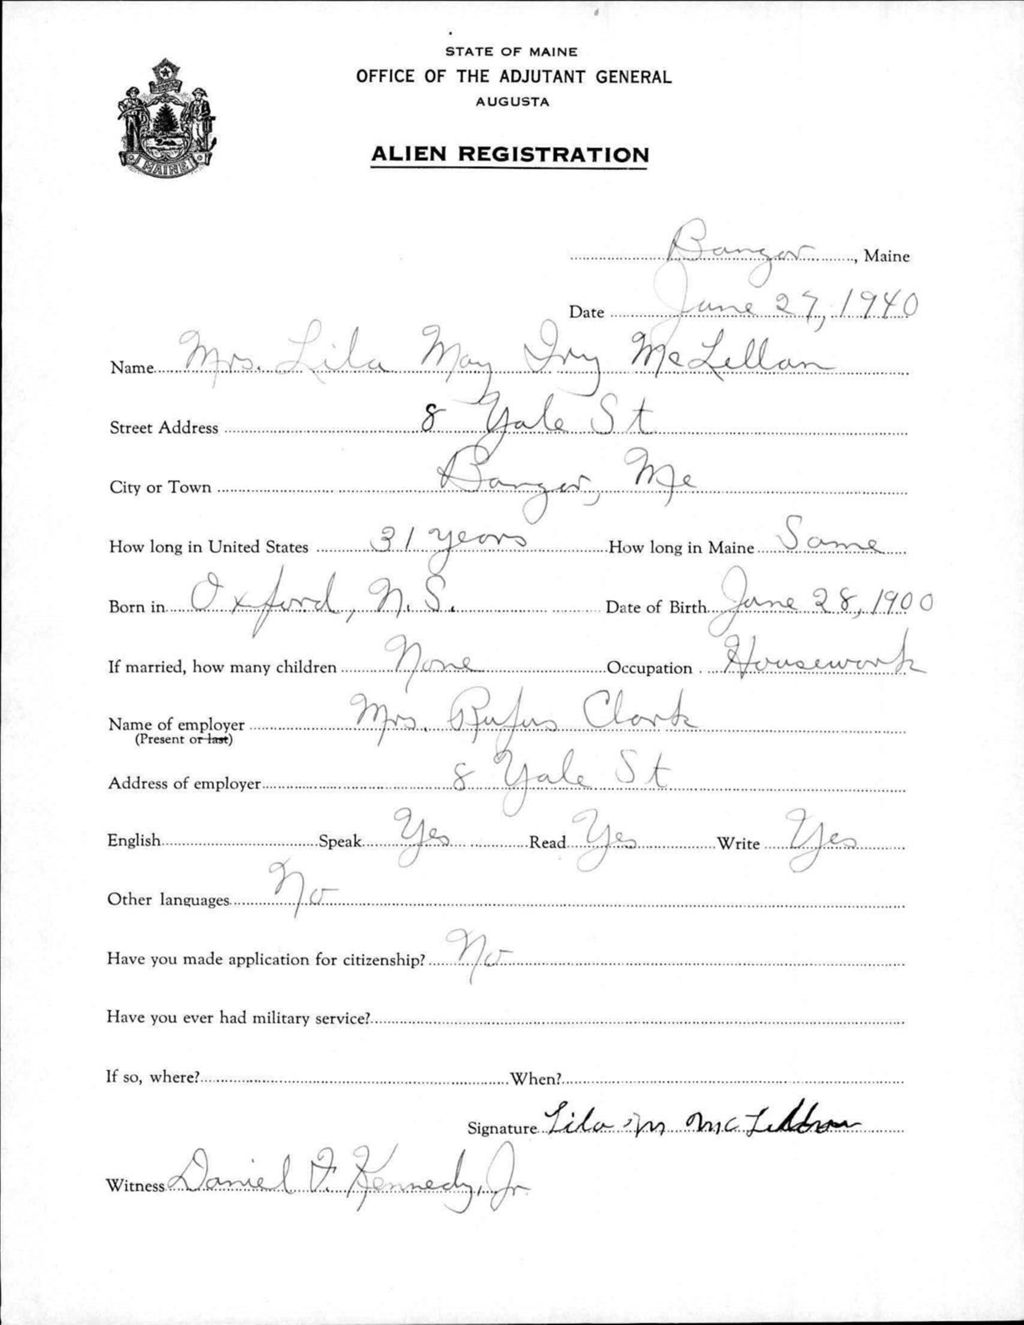 STATE OF MAINE
OFFICE OF THE ADJUTANT GENERAL
AUGUSTA
ALIEN REGISTRATION
MAINE
Bangor, Maine
Date June 27, 1940
Name Mrs. Lila May Ivy McLellan
Street Address 8 Yale St
City or Town Bangor, Me
How long in United States 31 years How long in Maine Same
Born in Oxford, N.S. Date of Birth June 28, 1900
If married, how many children None Occupation Housework
Name of employer Mrs. Rufus Clark
(Present or last)
Address of employer 8 Yale St
English Speak Yes Read Yes Write Yes
Other languages No
Have you made application for citizenship? No
Have you ever had military service?
If so, where? When?
Signature Lila M McLellan
Witness Daniel F. Kennedy, Jr